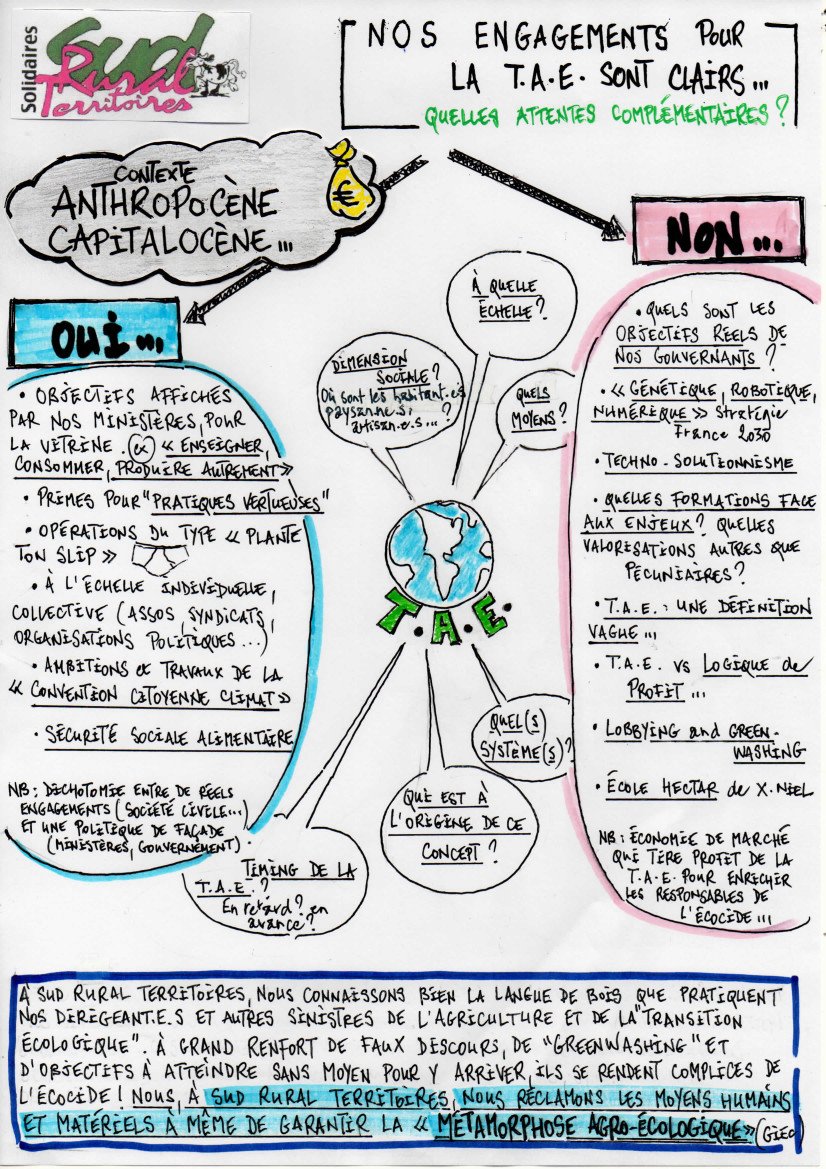 Solidaires
Sud
Rural
Territoires
NOS ENGAGEMENTS POUR
LA T.A.E. SONT CLAIRS...
QUELLES ATTENTES COMPLÉMENTAIRES ?
CONTEXTE
ANTHROPOCÈNE
CAPITALOCÈNE...
€
OUI...
• OBJECTIFS AFFICHÉS
PAR NOS MINISTÈRES, POUR
LA VITRINE. ex « ENSEIGNER,
CONSOMMER, PRODUIRE AUTREMENT »
• PRIMES POUR "PRATIQUES VERTUEUSES"
• OPÉRATIONS DU TYPE « PLANTE
TON SLIP »
• À L'ÉCHELLE INDIVIDUELLE,
COLLECTIVE (ASSOS, SYNDICATS,
ORGANISATIONS POLITIQUES...)
• AMBITIONS et TRAVAUX DE LA
« CONVENTION CITOYENNE CLIMAT »
• SÉCURITÉ SOCIALE ALIMENTAIRE
NB : DICHOTOMIE ENTRE DE RÉELS
ENGAGEMENTS (SOCIÉTÉ CIVILE...)
ET UNE POLITIQUE DE FAÇADE
(MINISTÈRES, GOUVERNEMENT).
À QUELLE
ÉCHELLE ?
DIMENSION
SOCIALE ?
Où sont les habitant.es
paysan.ne.s,
artisan.e.s... ?
QUELS
MOYENS ?
T.A.E.
QUEL(S)
SYSTÈME(S) ?
QUI EST À
L'ORIGINE DE CE
CONCEPT ?
TIMING DE LA
T.A.E. ?
En retard ? en
avance ?
NON...
• QUELS SONT LES
OBJECTIFS RÉELS DE
NOS GOUVERNANTS ?
• « GÉNÉTIQUE, ROBOTIQUE,
NUMÉRIQUE » Stratégie
France 2030
• TECHNO-SOLUTIONNISME
• QUELLES FORMATIONS FACE
AUX ENJEUX ? QUELLES
VALORISATIONS AUTRES QUE
PÉCUNIAIRES ?
• T.A.E. : UNE DÉFINITION
VAGUE...
• T.A.E. vs LOGIQUE de
PROFIT...
• LOBBYING and GREEN-
WASHING
• ÉCOLE HECTAR de X. NIEL
NB : ÉCONOMIE DE MARCHÉ
QUI TIRE PROFIT DE LA
T.A.E. POUR ENRICHIR
LES RESPONSABLES DE
L'ÉCOCIDE...
À SUD RURAL TERRITOIRES, NOUS CONNAISSONS BIEN LA LANGUE DE BOIS QUE PRATIQUENT
NOS DIRIGEANT.E.S ET AUTRES SINISTRES DE L'AGRICULTURE ET DE LA "TRANSITION
ÉCOLOGIQUE". À GRAND RENFORT DE FAUX DISCOURS, DE "GREENWASHING" ET
D'OBJECTIFS À ATTEINDRE SANS MOYEN POUR Y ARRIVER, ILS SE RENDENT COMPLICES DE
L'ÉCOCIDE ! NOUS, À SUD RURAL TERRITOIRES, NOUS RÉCLAMONS LES MOYENS HUMAINS
ET MATÉRIELS À MÊME DE GARANTIR LA « MÉTAMORPHOSE AGRO-ÉCOLOGIQUE » (GIEC)